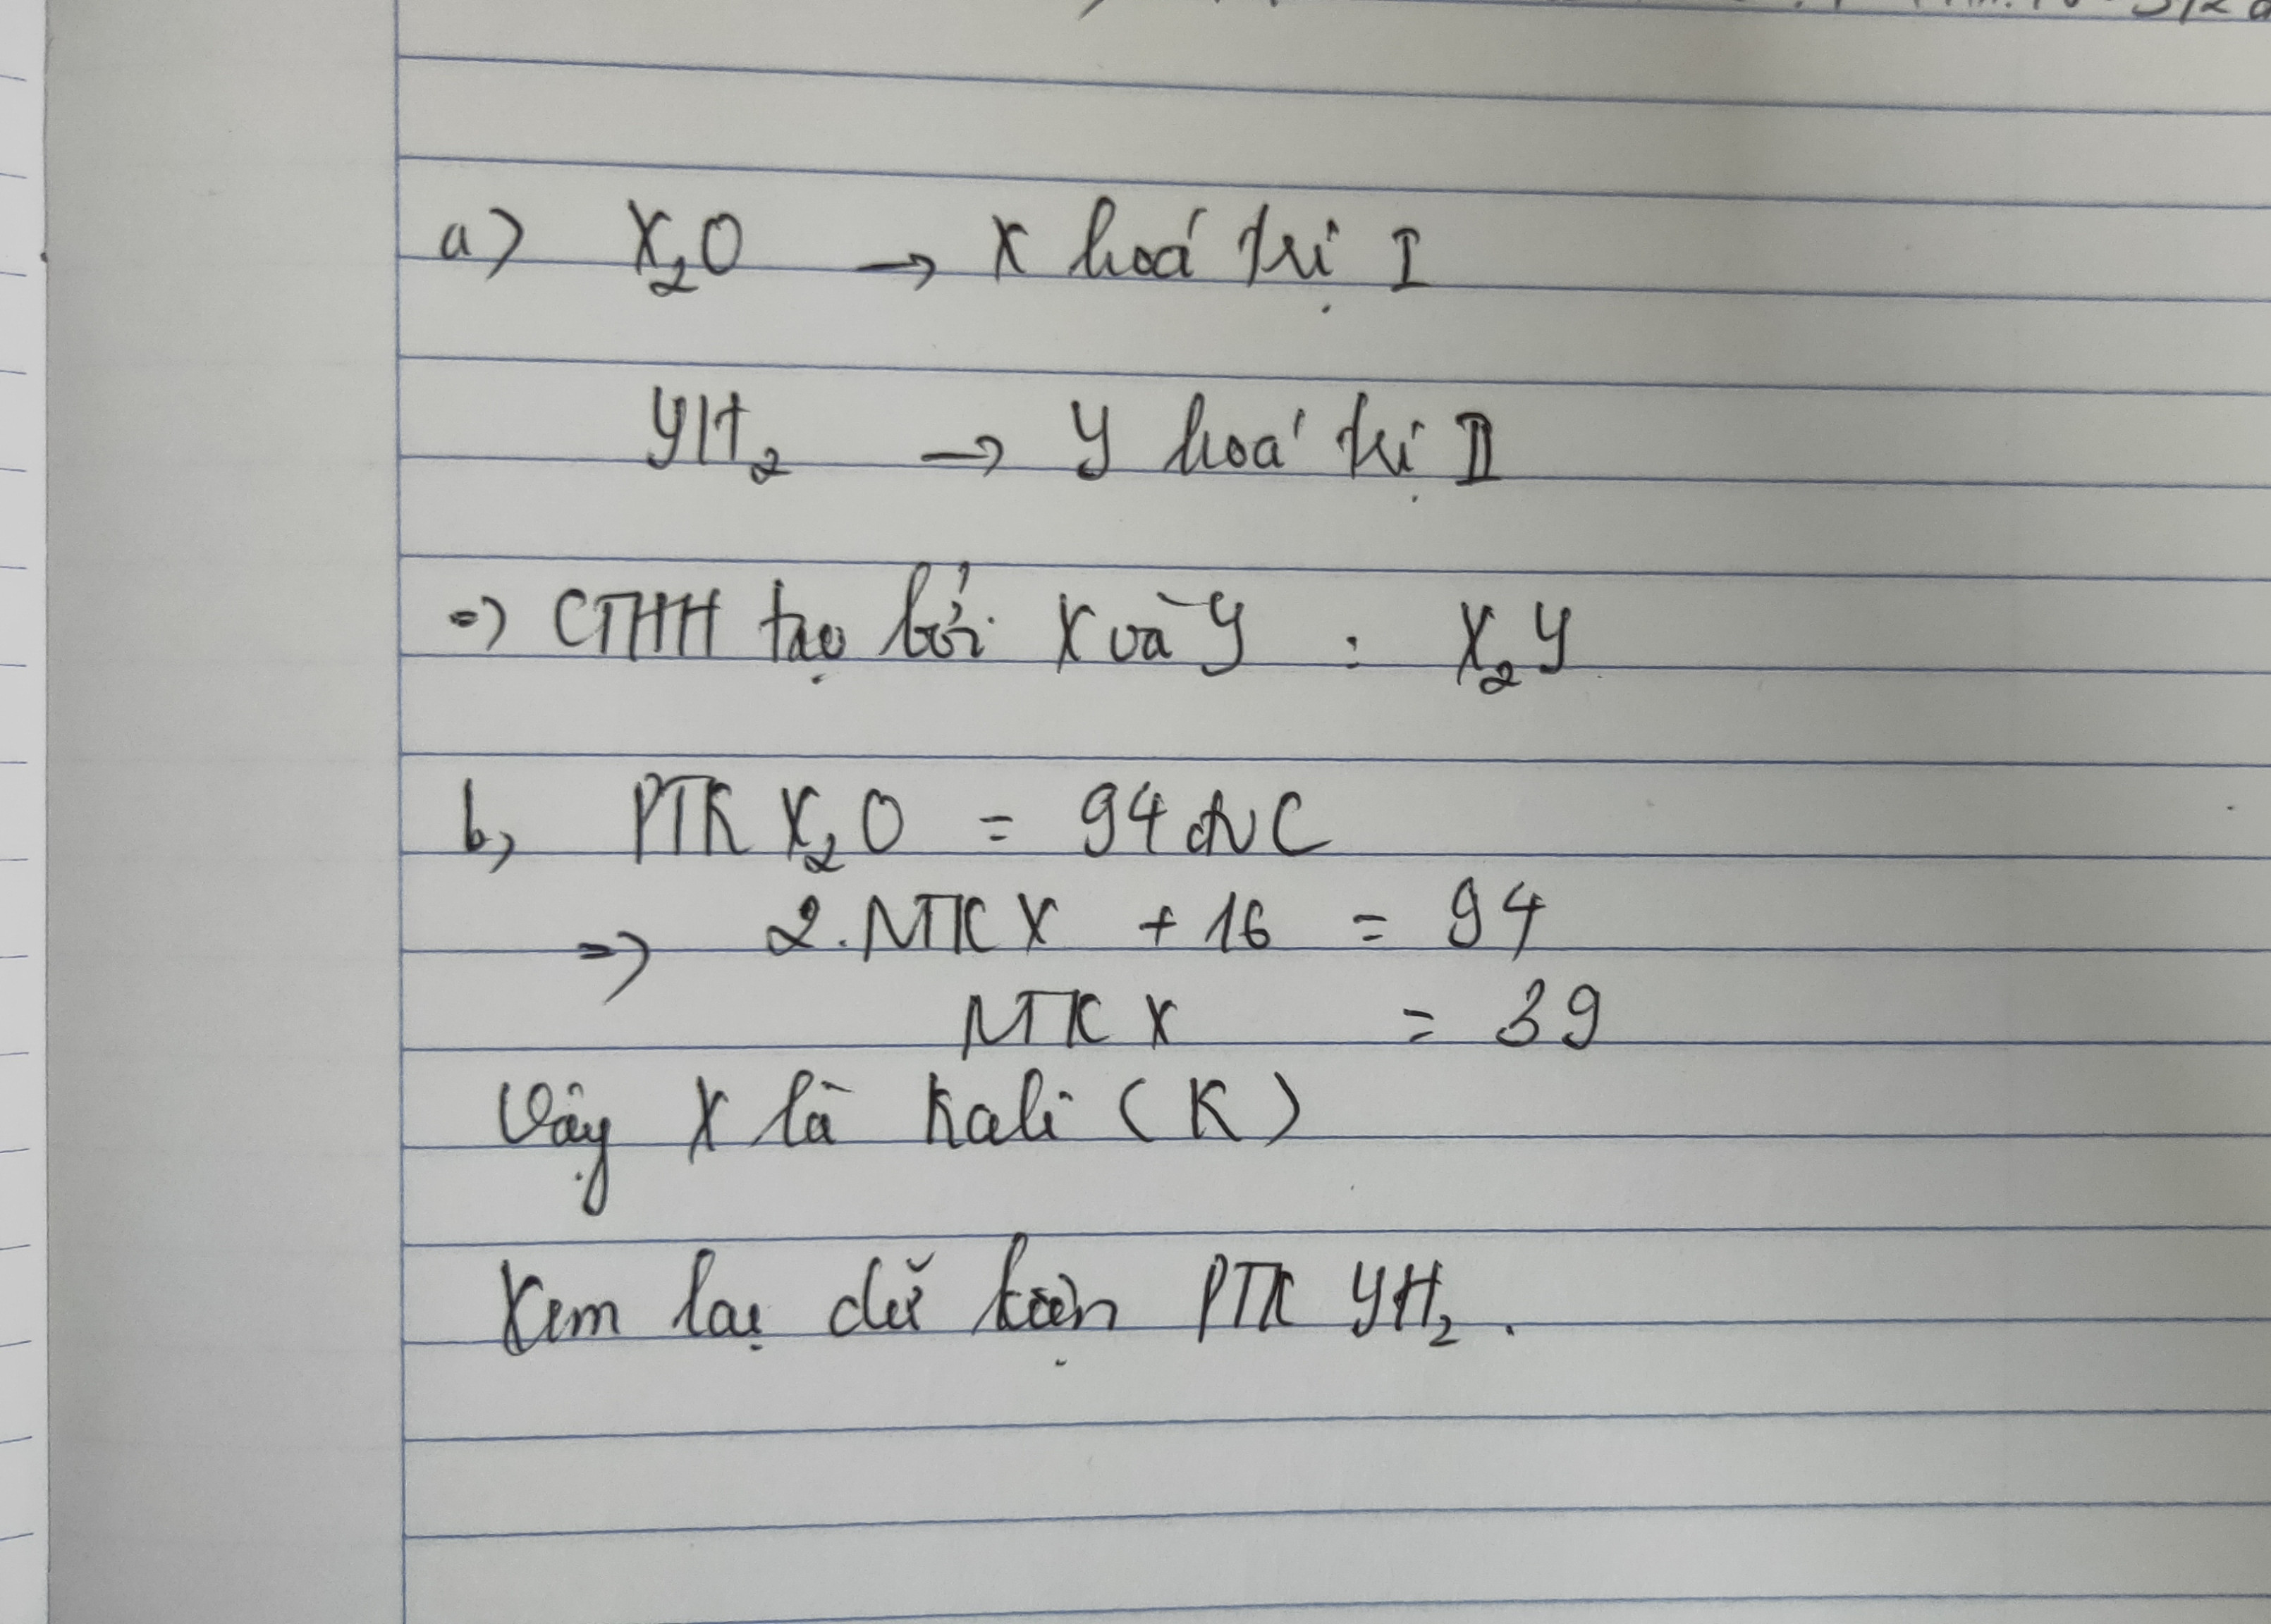 a) X₂O → X hoá trị I
YH₂ → Y hoá trị II
=) CTHH tạo bởi X và Y : X₂Y
b, PTK X₂O = 94 đvC
=) 2.NTK X + 16 = 94
NTK X = 39
Vậy X là Kali (K)
Xem lại dữ kiện PTK YH₂.